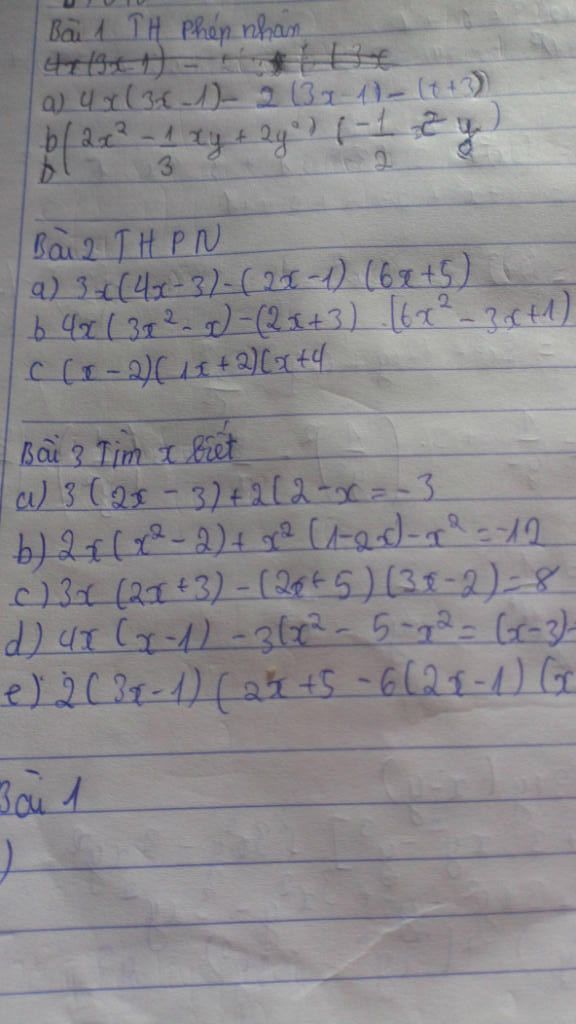 Bài 1 TH phép nhân
4x(3x-1) -
a) 4x(3x-1) - 2(3x-1) - (x+3)
b) (2x² - 1/3 xy + 2y²) (-1/2 y)
b
Bài 2 THPN
a) 3x(4x-3) - (2x-1) (6x+5)
b 4x(3x²-x) - (2x+3) . (6x² - 3x+1)
c (x-2)(1x+2)(x+4
Bài 3 Tìm x biết
a) 3(2x-3)+2(2-x=-3
b) 2x(x²-2)+x²(1-2x)-x²=-12
c) 3x(2x+3)-(2x+5)(3x-2)=8
d) 4x(x-1)-3(x²-5-x²=(x-3)-
e) 2(3x-1)(2x+5-6(2x-1)(x
Bài 1
)